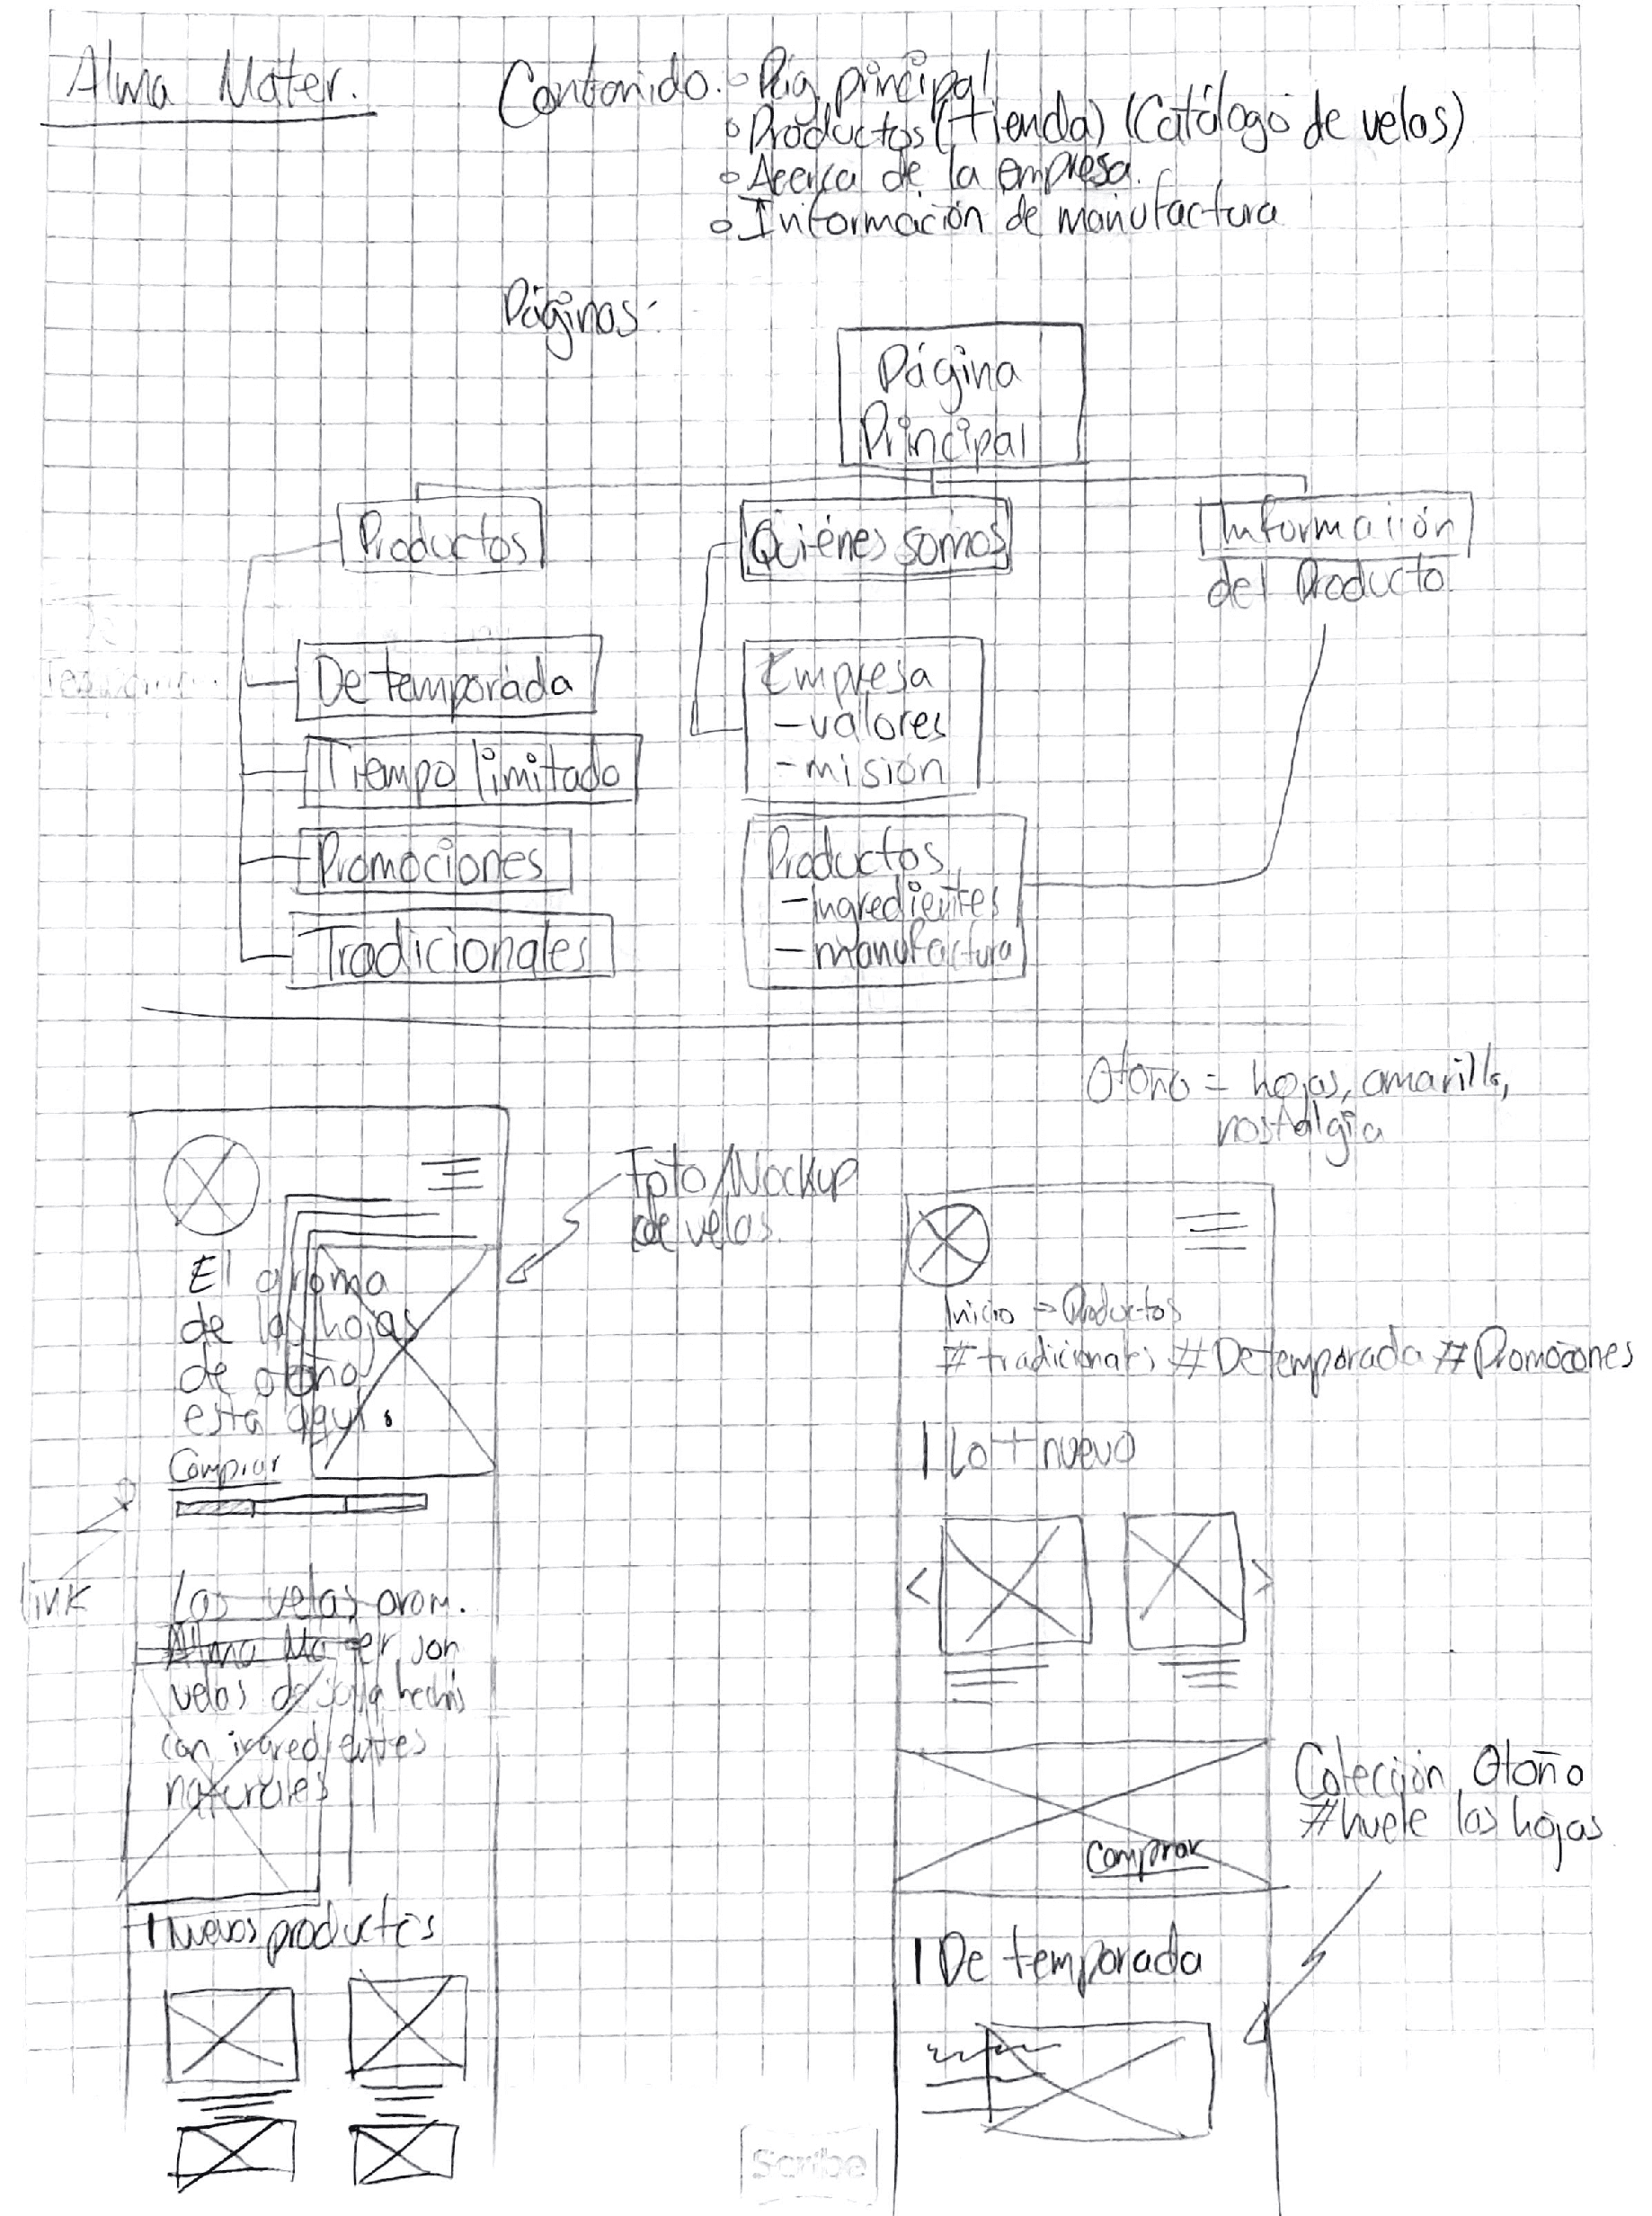 Alma Mater.
Contenido. Pág. principal
Productos (tienda) (Catálogo de velas)
Acerca de la empresa.
Información de manufactura
Páginas:
Página
Principal
Productos
Quiénes somos
Información
del Producto
De temporada
Tiempo limitado
Promociones
Tradicionales
Empresa
- valores
- misión
Productos
- ingredientes
- manufactura
Otoño = hojas, amarillo,
nostalgia
Foto/Mockup
de velas.
El aroma
de las hojas
de otoño
está aquí.
Comprar
link
Las velas arom.
Alma Mater son
velas de soya hechas
con ingredientes
naturales
| Nuevos productos
Inicio → Productos
#tradicionales #De temporada #Promociones
| Lo + nuevo
< >
Comprar
Colección Otoño
#huele las hojas
| De temporada
Scribe